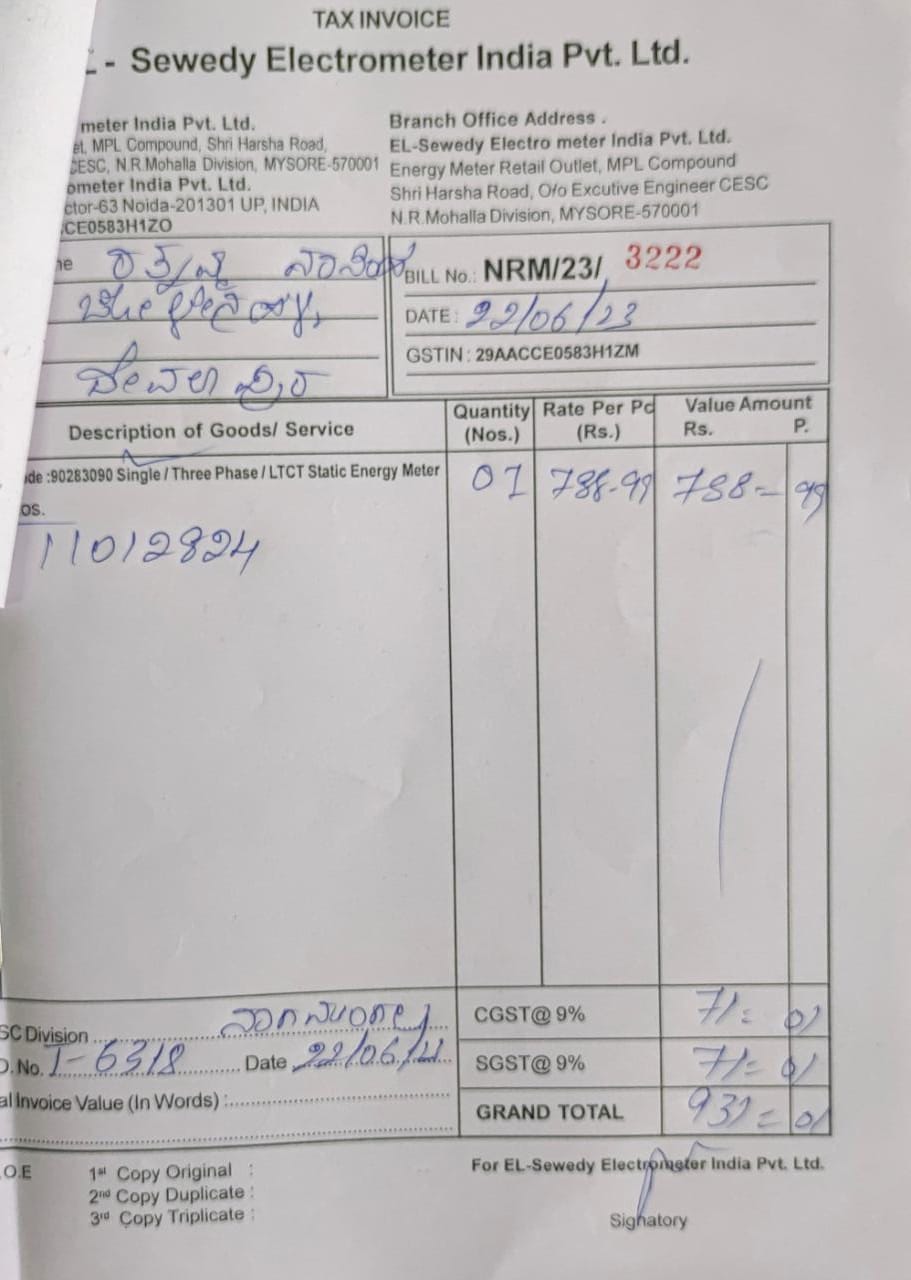 TAX INVOICE
- Sewedy Electrometer India Pvt. Ltd.
meter India Pvt. Ltd.
et, MPL Compound, Shri Harsha Road,
CESC, N.R.Mohalla Division, MYSORE-570001
ometer India Pvt. Ltd.
ctor-63 Noida-201301 UP, INDIA
CE0583H1ZO
Branch Office Address .
EL-Sewedy Electro meter India Pvt. Ltd.
Energy Meter Retail Outlet, MPL Compound
Shri Harsha Road, O/o Excutive Engineer CESC
N.R.Mohalla Division, MYSORE-570001
BILL No.: NRM/23/ 3222
DATE : 22/06/23
GSTIN : 29AACCE0583H1ZM
Description of Goods/ Service
Quantity (Nos.)
Rate Per Pc (Rs.)
Value Amount
Rs. P.
de :90283090 Single / Three Phase / LTCT Static Energy Meter
01 788-99 788= 99
os.
11012824
SC Division
O. No. I-6318 Date 22/06/
al Invoice Value (In Words) :
CGST@ 9% 71= 01
SGST@ 9% 71= 01
GRAND TOTAL 931= 01
.O.E
1st Copy Original :
2nd Copy Duplicate :
3rd Copy Triplicate :
For EL-Sewedy Electrometer India Pvt. Ltd.
Sighatory